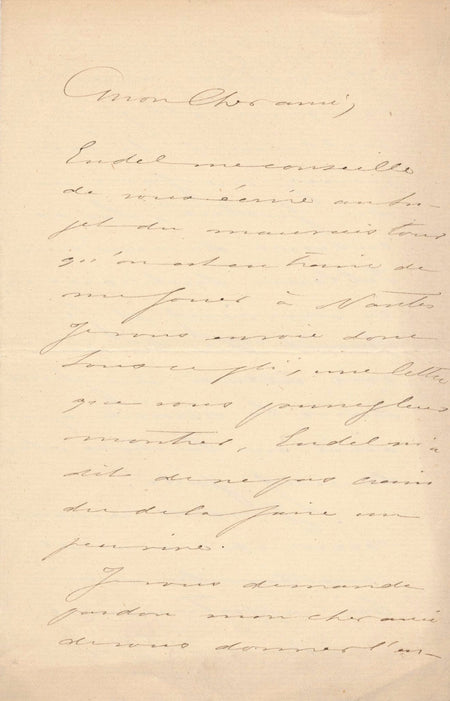 Mon cher ami,
Eudel me conseille
de vous écrire au su-
jet du mauvais tour
qu'on est en train de
me jouer à Nantes
Je vous envoie donc
sous ce pli, une lettre
que vous pourrez leur
montrer, Eudel m'a
dit de ne pas crain
dre de la faire un
peu
Je vous demande
pardon mon cher ami
de vous donner l'en-